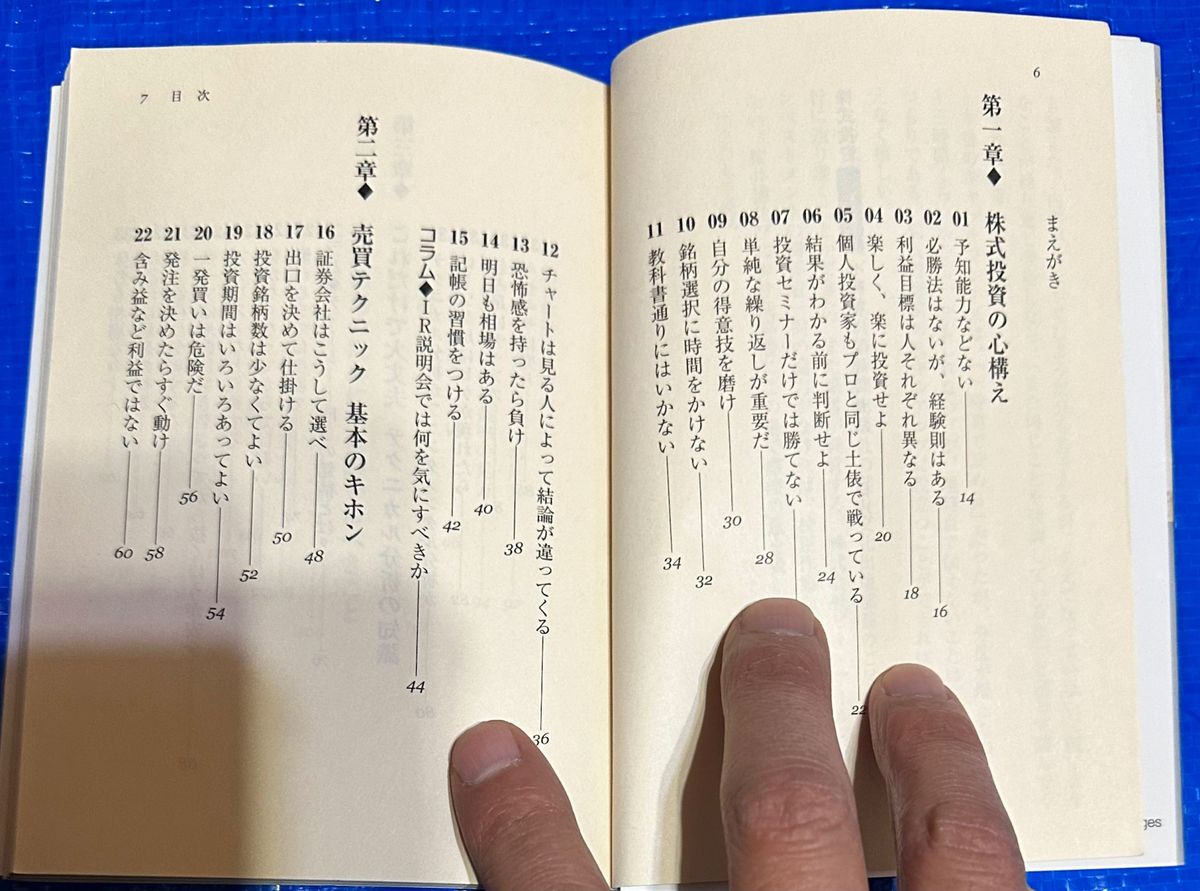 6
まえがき
第一章◆ 株式投資の心構え
01 予知能力などない 14
02 必勝法はないが、経験則はある 16
03 利益目標は人それぞれ異なる 18
04 楽しく、楽に投資せよ 20
05 個人投資家もプロと同じ土俵で戦っている 22
06 結果がわかる前に判断せよ 24
07 投資セミナーだけでは勝てない
08 単純な繰り返しが重要だ 28
09 自分の得意技を磨け 30
10 銘柄選択に時間をかけない 32
11 教科書通りにはいかない 34
7 目次
12 チャートは見る人によって結論が違ってくる 36
13 恐怖感を持ったら負け 38
14 明日も相場はある 40
15 記帳の習慣をつける 42
コラム◆IR説明会では何を気にすべきか 44
第二章◆ 売買テクニック 基本のキホン
16 証券会社はこうして選べ 48
17 出口を決めて仕掛ける 50
18 投資銘柄数は少なくてよい 52
19 投資期間はいろいろあってよい 54
20 一発買いは危険だ 56
21 発注を決めたらすぐ動け 58
22 含み益など利益ではない 60